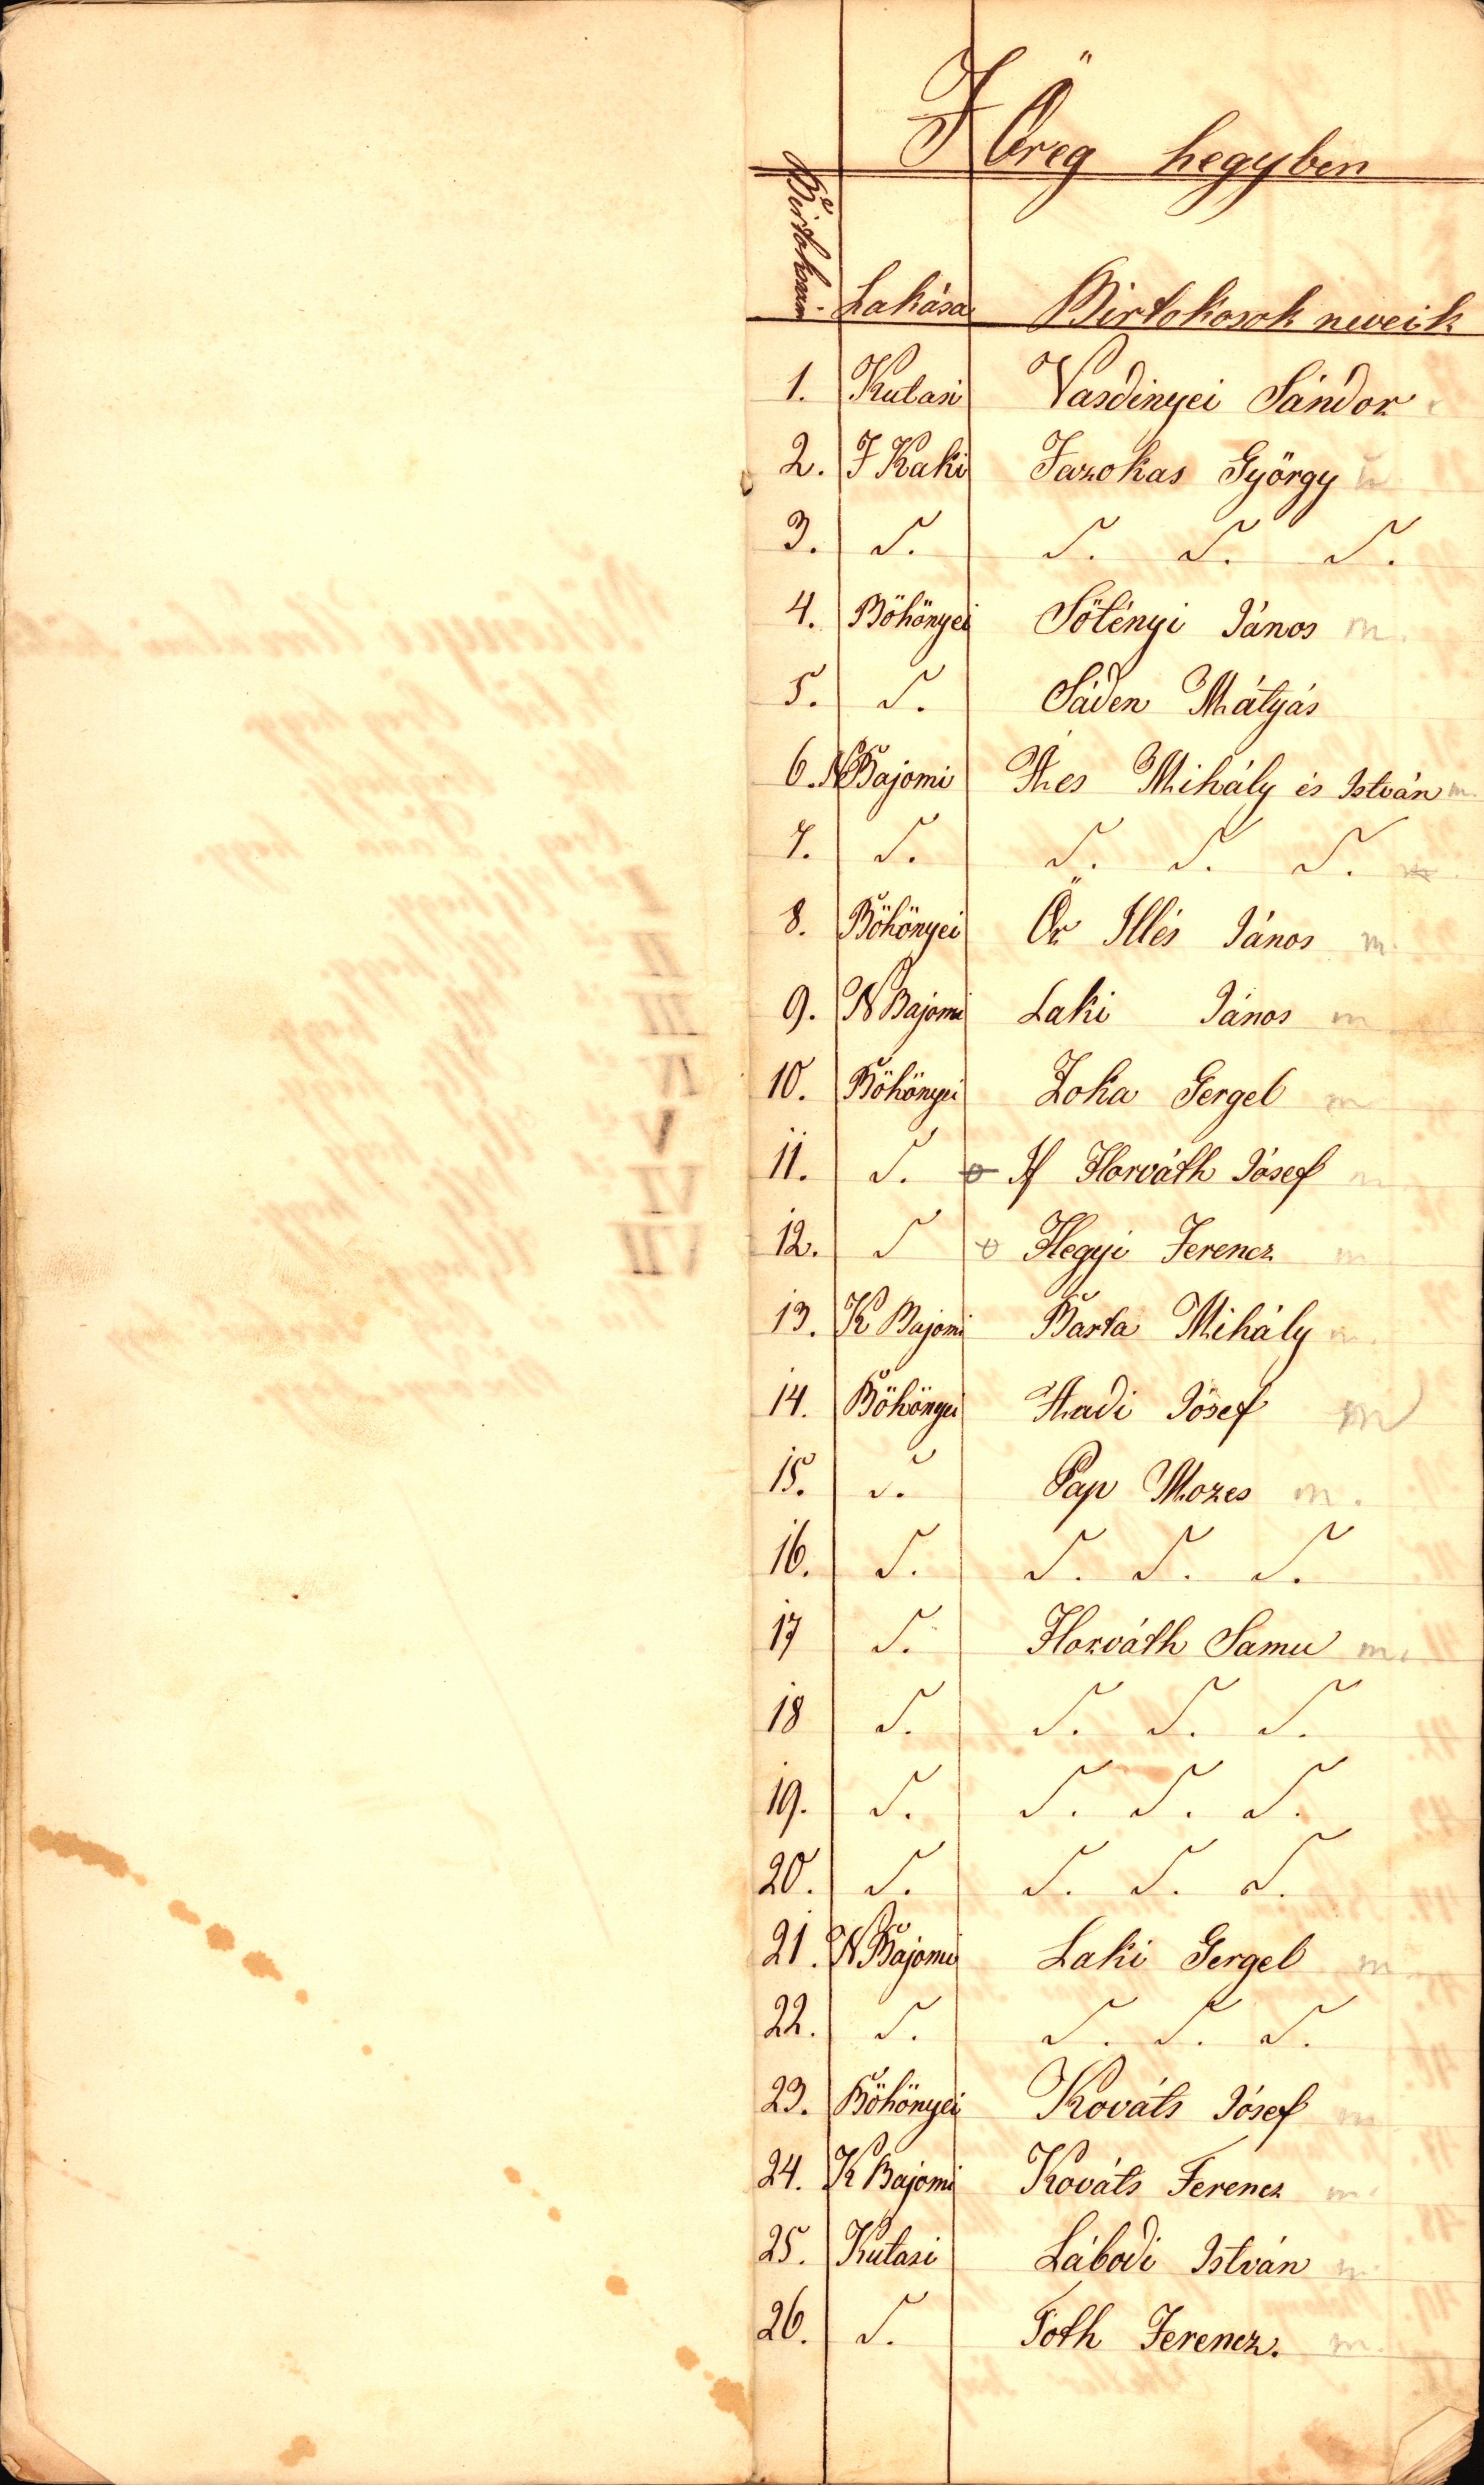 I Öreg hegyben
Birtokszám. Lakása Birtokosok neveik
1. Kutasi Vasdinyei Sándor
2. F Kaki Fazokas György
3. S. S. S. S.
4. Böhönyei Sötényi János m.
5. S. Sáden Mátyás
6. N Bajomi Mihály és István m.
7. S. S. S. S.
8. Böhönyei Ör Illés János m.
9. N Bajomi Laki János m
10. Böhönyei Zoka Gergel m
11. S. If Horváth Jósef m
12. S Hegyi Ferencz m
13. K Bajomi Barta Mihály m.
14. Böhönyei Jósef m
15. S. Pap Mozes m.
16. S. S. S. S.
17 S. Horváth Samu m.
18 S. S. S. S.
19. S. S. S. S.
20. S. S. S. S.
21. N Bajomi Laki Gergel m
22. S. S. S. S.
23. Böhönyei Kováts Jósef m
24. K Bajomi Kováts Ferencz m.
25. Kutasi Lábodi István m
26. S. Toth Ferencz. m.